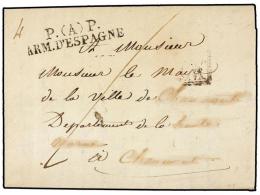 4
P. (A) P.
ARM. D'ESPAGNE
A Monsieur
Monsieur le Maire
de la ville de Chaumont
Departement de la haute
Marne
à Chaumont